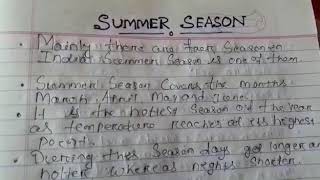 SUMMER SEASON
• Mainly there are four Season in
India Summer Season is one of them.
• Summer Season Covers the months
March April May and June.
• It is the hottest Season of the Year
as temperature reaches at its highest
point.
• During this Season days get longer and
hotter whereas nights Shorter.